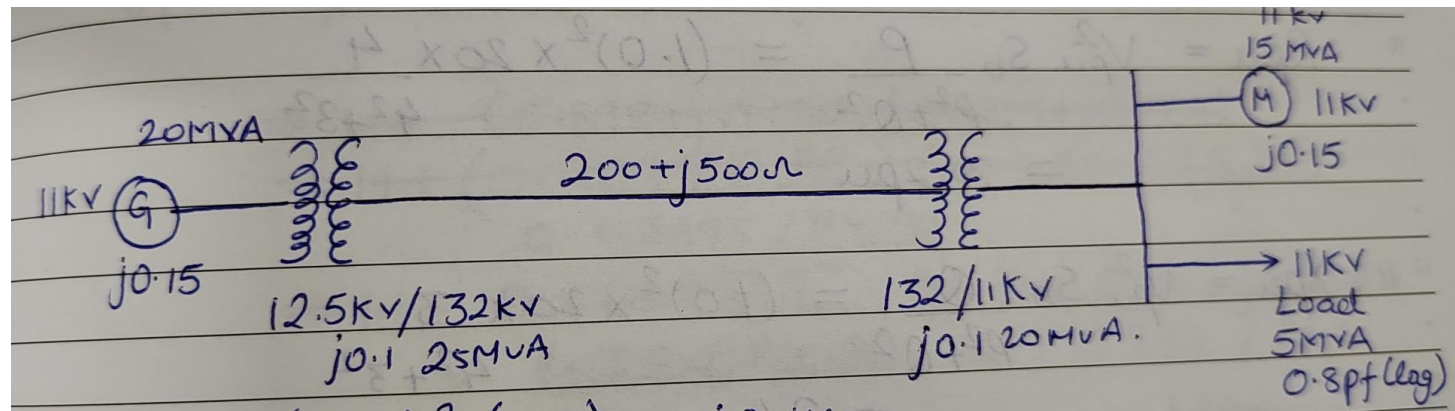 11 KV
15 MVA
M 11KV
j0.15
20MVA
11KV G
j0.15
200+j500Ω
12.5KV/132KV
j0.1 25MVA
132/11KV
j0.1 20MVA.
11KV
Load
5MVA
0.8pf (lag)